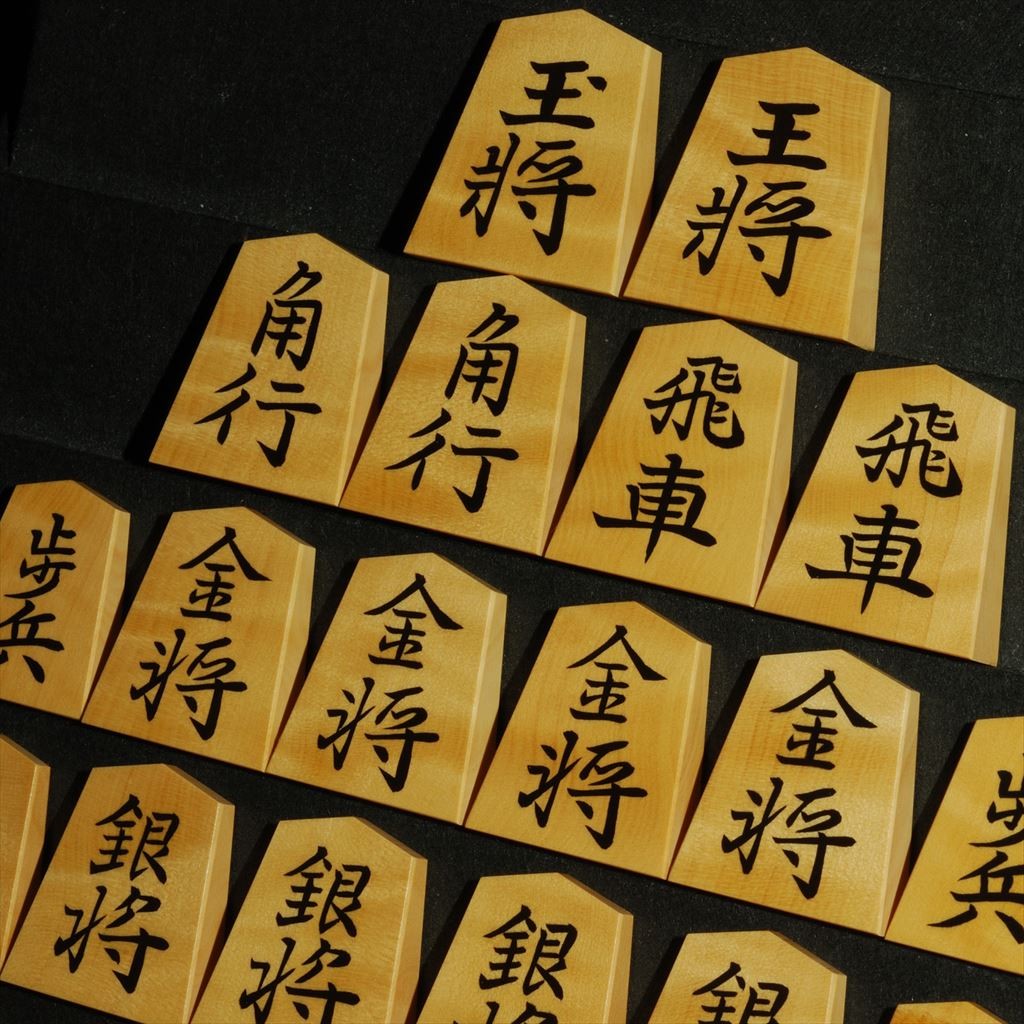 玉將
王將
角行
角行
飛車
飛車
歩兵
金将
金将
金将
金将
歩兵
銀将
銀将
銀将
銀